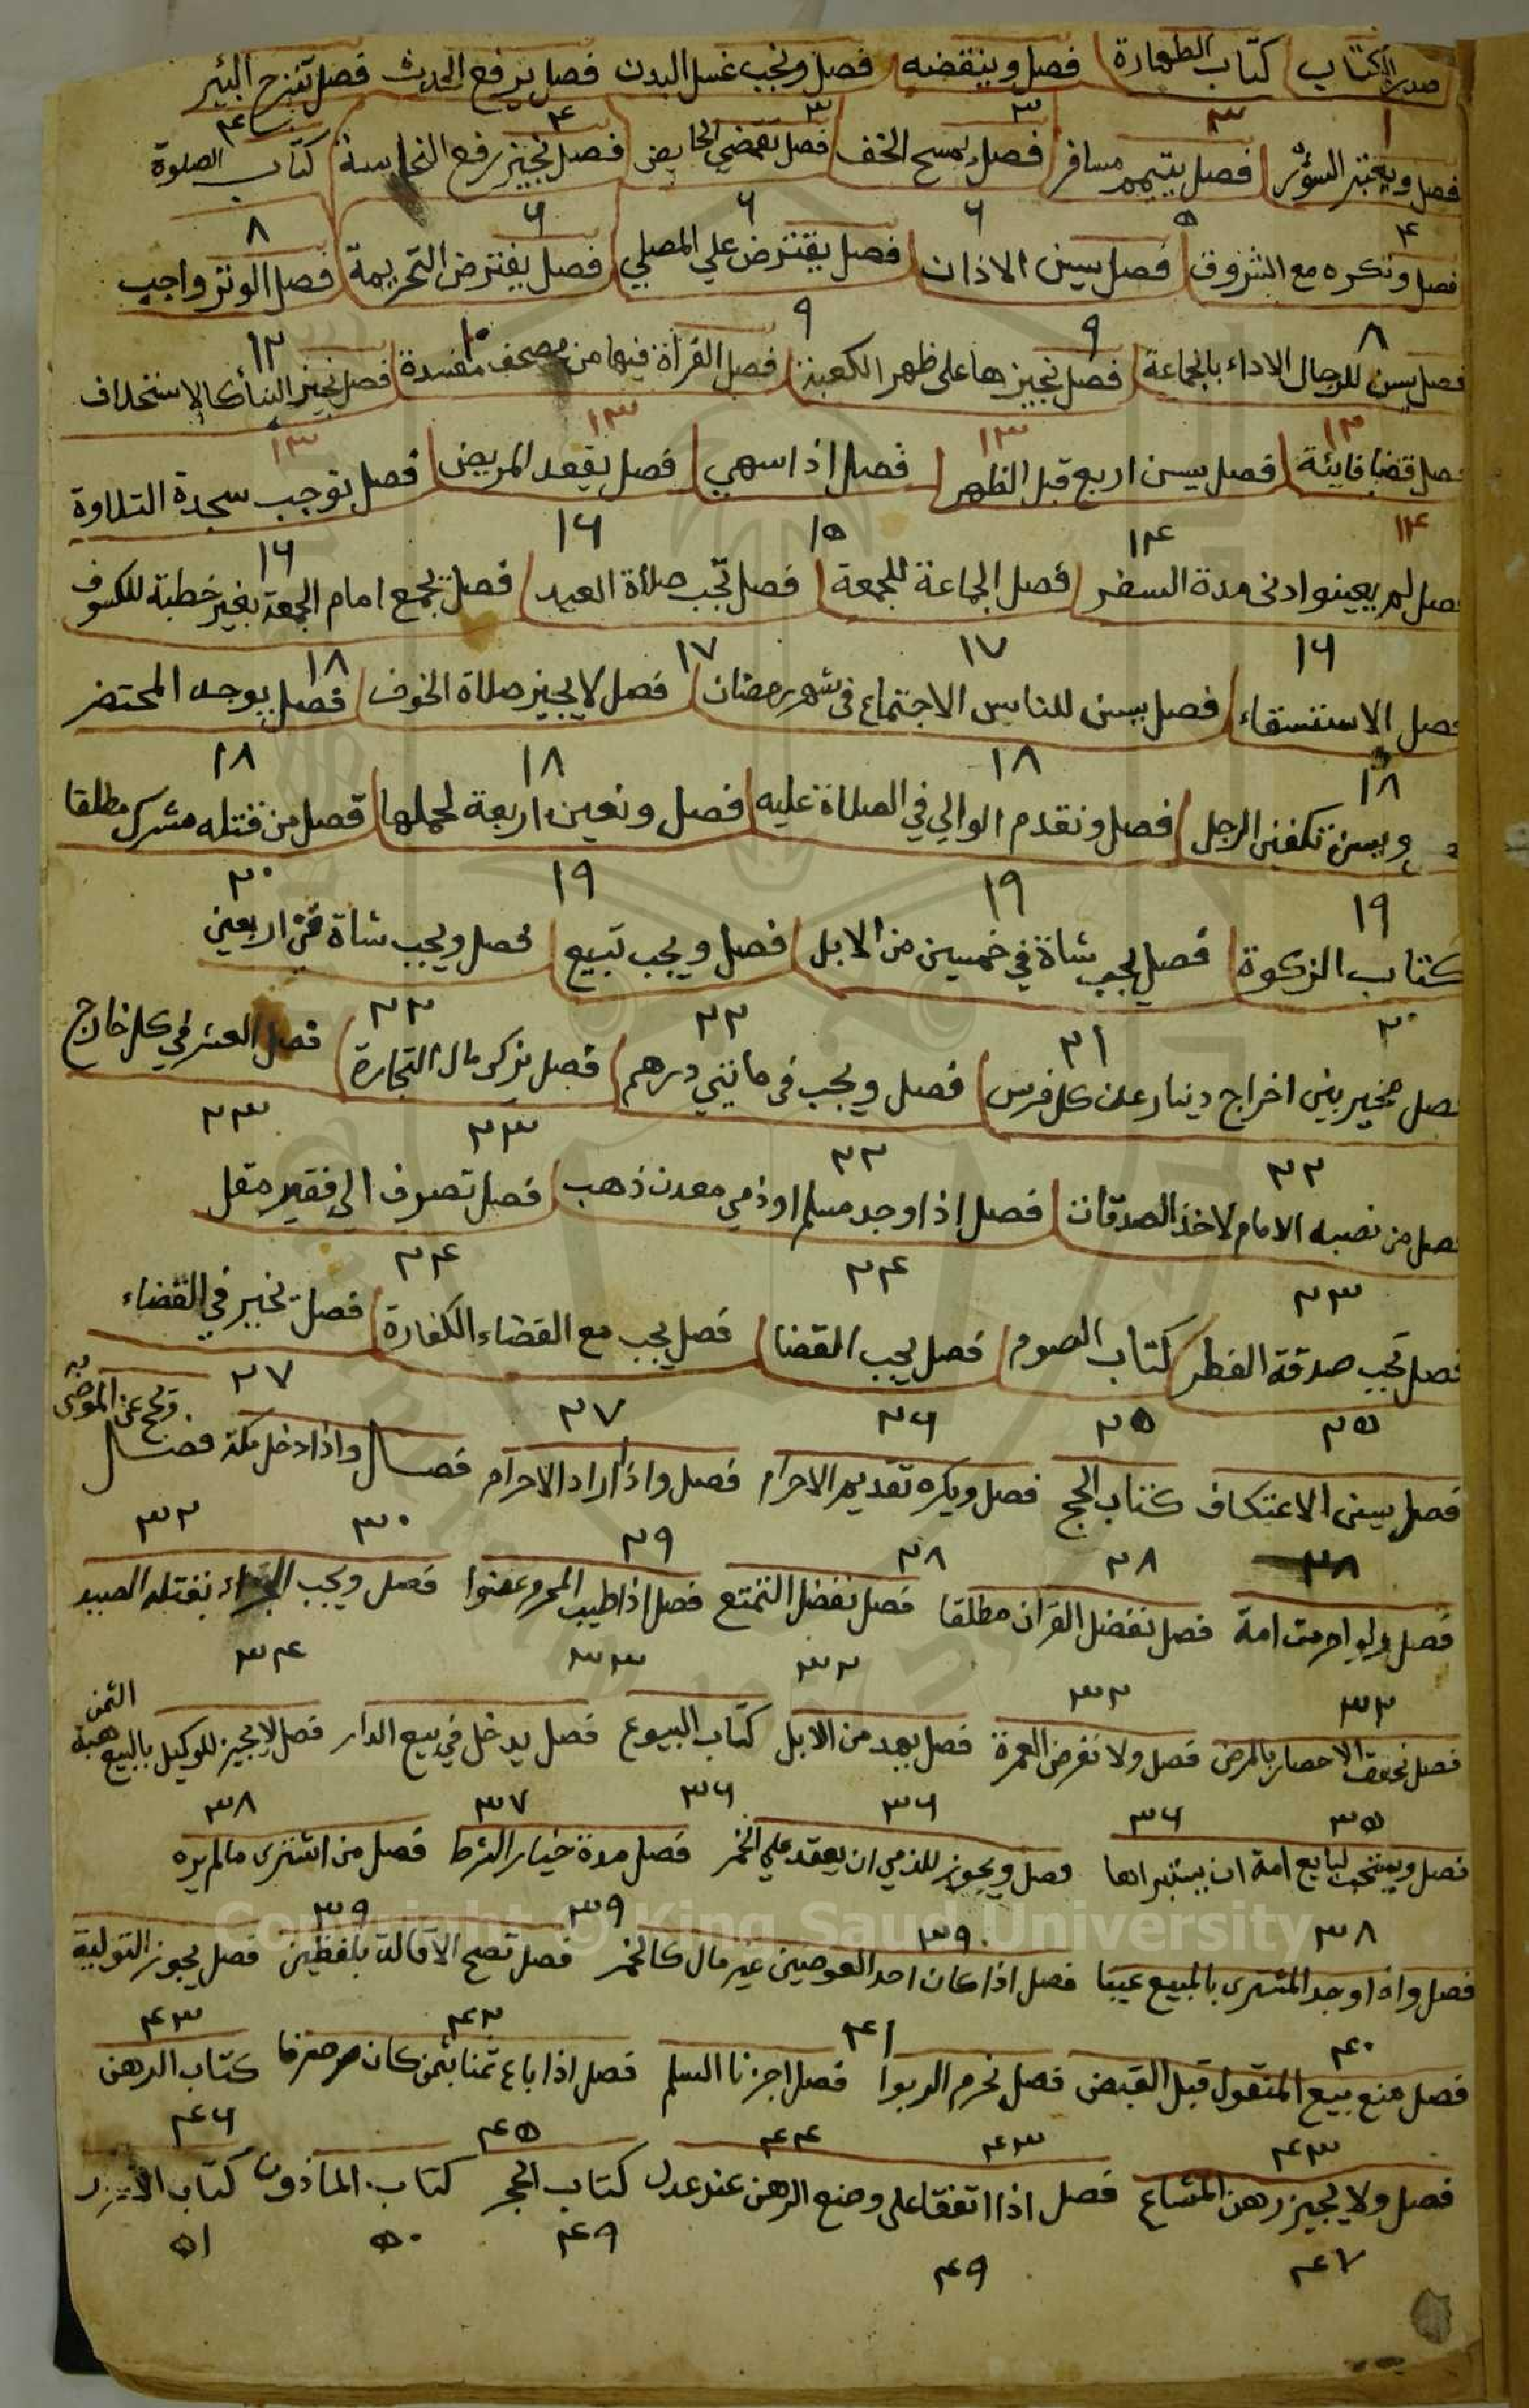 صدر الكتاب كتاب الطهارة فصل وينقضه فصل ونجب غسل البدن فصل يرفع الحدث فصل تنزح البئر
١ ٣ ٣ ٣ ٤ ٤
فصل ويعتبر السؤر فصل يتيمم مسافر فصل يمسح الخف فصل تقضي الحايض فصل نجيز رفع النجاسة كتاب الصلوة
٤ ٥ ٦ ٦ ٦ ٨
فصل ونكره مع الشروق فصل يسن الاذان فصل يفترض علي المصلي فصل يفترض التحريمة فصل الوتر واجب
٨ ٩ ٩ ١٠ ١٢
فصل يسن للرجال الاداء بالجماعة فصل نجيزها على ظهر الكعبة فصل القراة فيها من مصحف مفسدة فصل نجيز البنأ كالاستخلاف
١٣ ١٣ ١٣ ١٣
فصل قضا فايئة فصل يسن اربع قبل الظهر فصل اذا سهي فصل يقعد المريض فصل توجب سجدة التلاوة
١٤ ١٤ ١٥ ١٦ ١٦
فصل لم يعينوا ادنى مدة السفر فصل الجماعة للجمعة فصل تجب صلاة العيد فصل يجمع امام الجمعة بغير خطبة للكسوف
١٦ ١٧ ١٧ ١٨
فصل الاستسقاء فصل يسن للناس الاجتماع في شهر رمضان فصل لا يجيز صلاة الخوف فصل يوجه المحتضر
١٨ ١٨ ١٨ ١٨
ويسن تكفين الرجل فصل ونقدم الوالي في الصلاة عليه فصل ونعين اربعة لحملها فصل من قتله مشرك مطلقا
١٩ ١٩ ١٩ ٢٠
كتاب الزكوة فصل يجب شاة في خمسين من الابل فصل ويجب تبيع فصل ويجب شاة في اربعين
٢٠ ٢١ ٢٢ ٢٢
فصل مخير بين اخراج دينار عن كل فرس فصل ويجب في مائتي درهم فصل يزكى مال التجارة فصل العشر في كل خارج
٢٢ ٢٢ ٢٣ ٢٣
فصل من نصبه الامام لاخذ الصدقات فصل اذا وجد مسلم او ذمي معدن ذهب فصل تصرف الى فقير مقل
٢٣ ٢٤ ٢٤
فصل تجب صدقة الفطر كتاب الصوم فصل يجب القضا فصل يجب مع القضاء الكفارة فصل نخير في القضاء
٢٥ ٢٥ ٢٦ ٢٧ ٢٧
فصل يسن الاعتكاف كتاب الحج فصل ويكره تقديم الاحرام فصل واذا اراد الاحرام فصل واذا دخل مكة فصل
٢٨ ٢٨ ٢٨ ٢٩ ٣٠ ٣٢
فصل ولو احرمت امة فصل نفضل القران مطلقا فصل نفضل التمتع فصل اذا طيب المحرم عضوا فصل ويجب الجزاء بقتله الصيد
٣٢ ٣٢ ٣٢ ٣٣ ٣٤
فصل نحقق الاحصار بالمرض فصل ولا نفرض العمرة فصل يهدي من الابل كتاب البيوع فصل يدخل في بيع الدار فصل لا يجيز للوكيل بالبيع هبة الثمن
٣٥ ٣٦ ٣٦ ٣٦ ٣٧ ٣٨
فصل ويستحب لبايع امة ان يستبراها فصل ويجوز للذمي ان يعقد علي الخمر فصل مدة خيار الشرط فصل من اشترى مالم يره
٣٨ ٣٩ ٣٩ ٣٩
فصل واذا وجد المشترى بالمبيع عيبا فصل اذا كان احد العوضين غير مال كالخمر فصل تصح الاقالة بلفظين فصل يجوز التولية
٤٠ ٤١ ٤٢ ٤٣
فصل منع بيع المنقول قبل القبض فصل نحرم الربوا فصل اجزنا السلم فصل اذا باع ثمنا بثمن كان صرفا كتاب الرهن
٤٣ ٤٣ ٤٤ ٤٥ ٤٦
فصل ولا يجيز رهن المشاع فصل اذا اتفقا على وضع الرهن عند عدل كتاب الحجر كتاب الماذون كتاب
٤٧ ٤٩ ٤٩ ٥٠ ٥١
Copyright © King Saud University